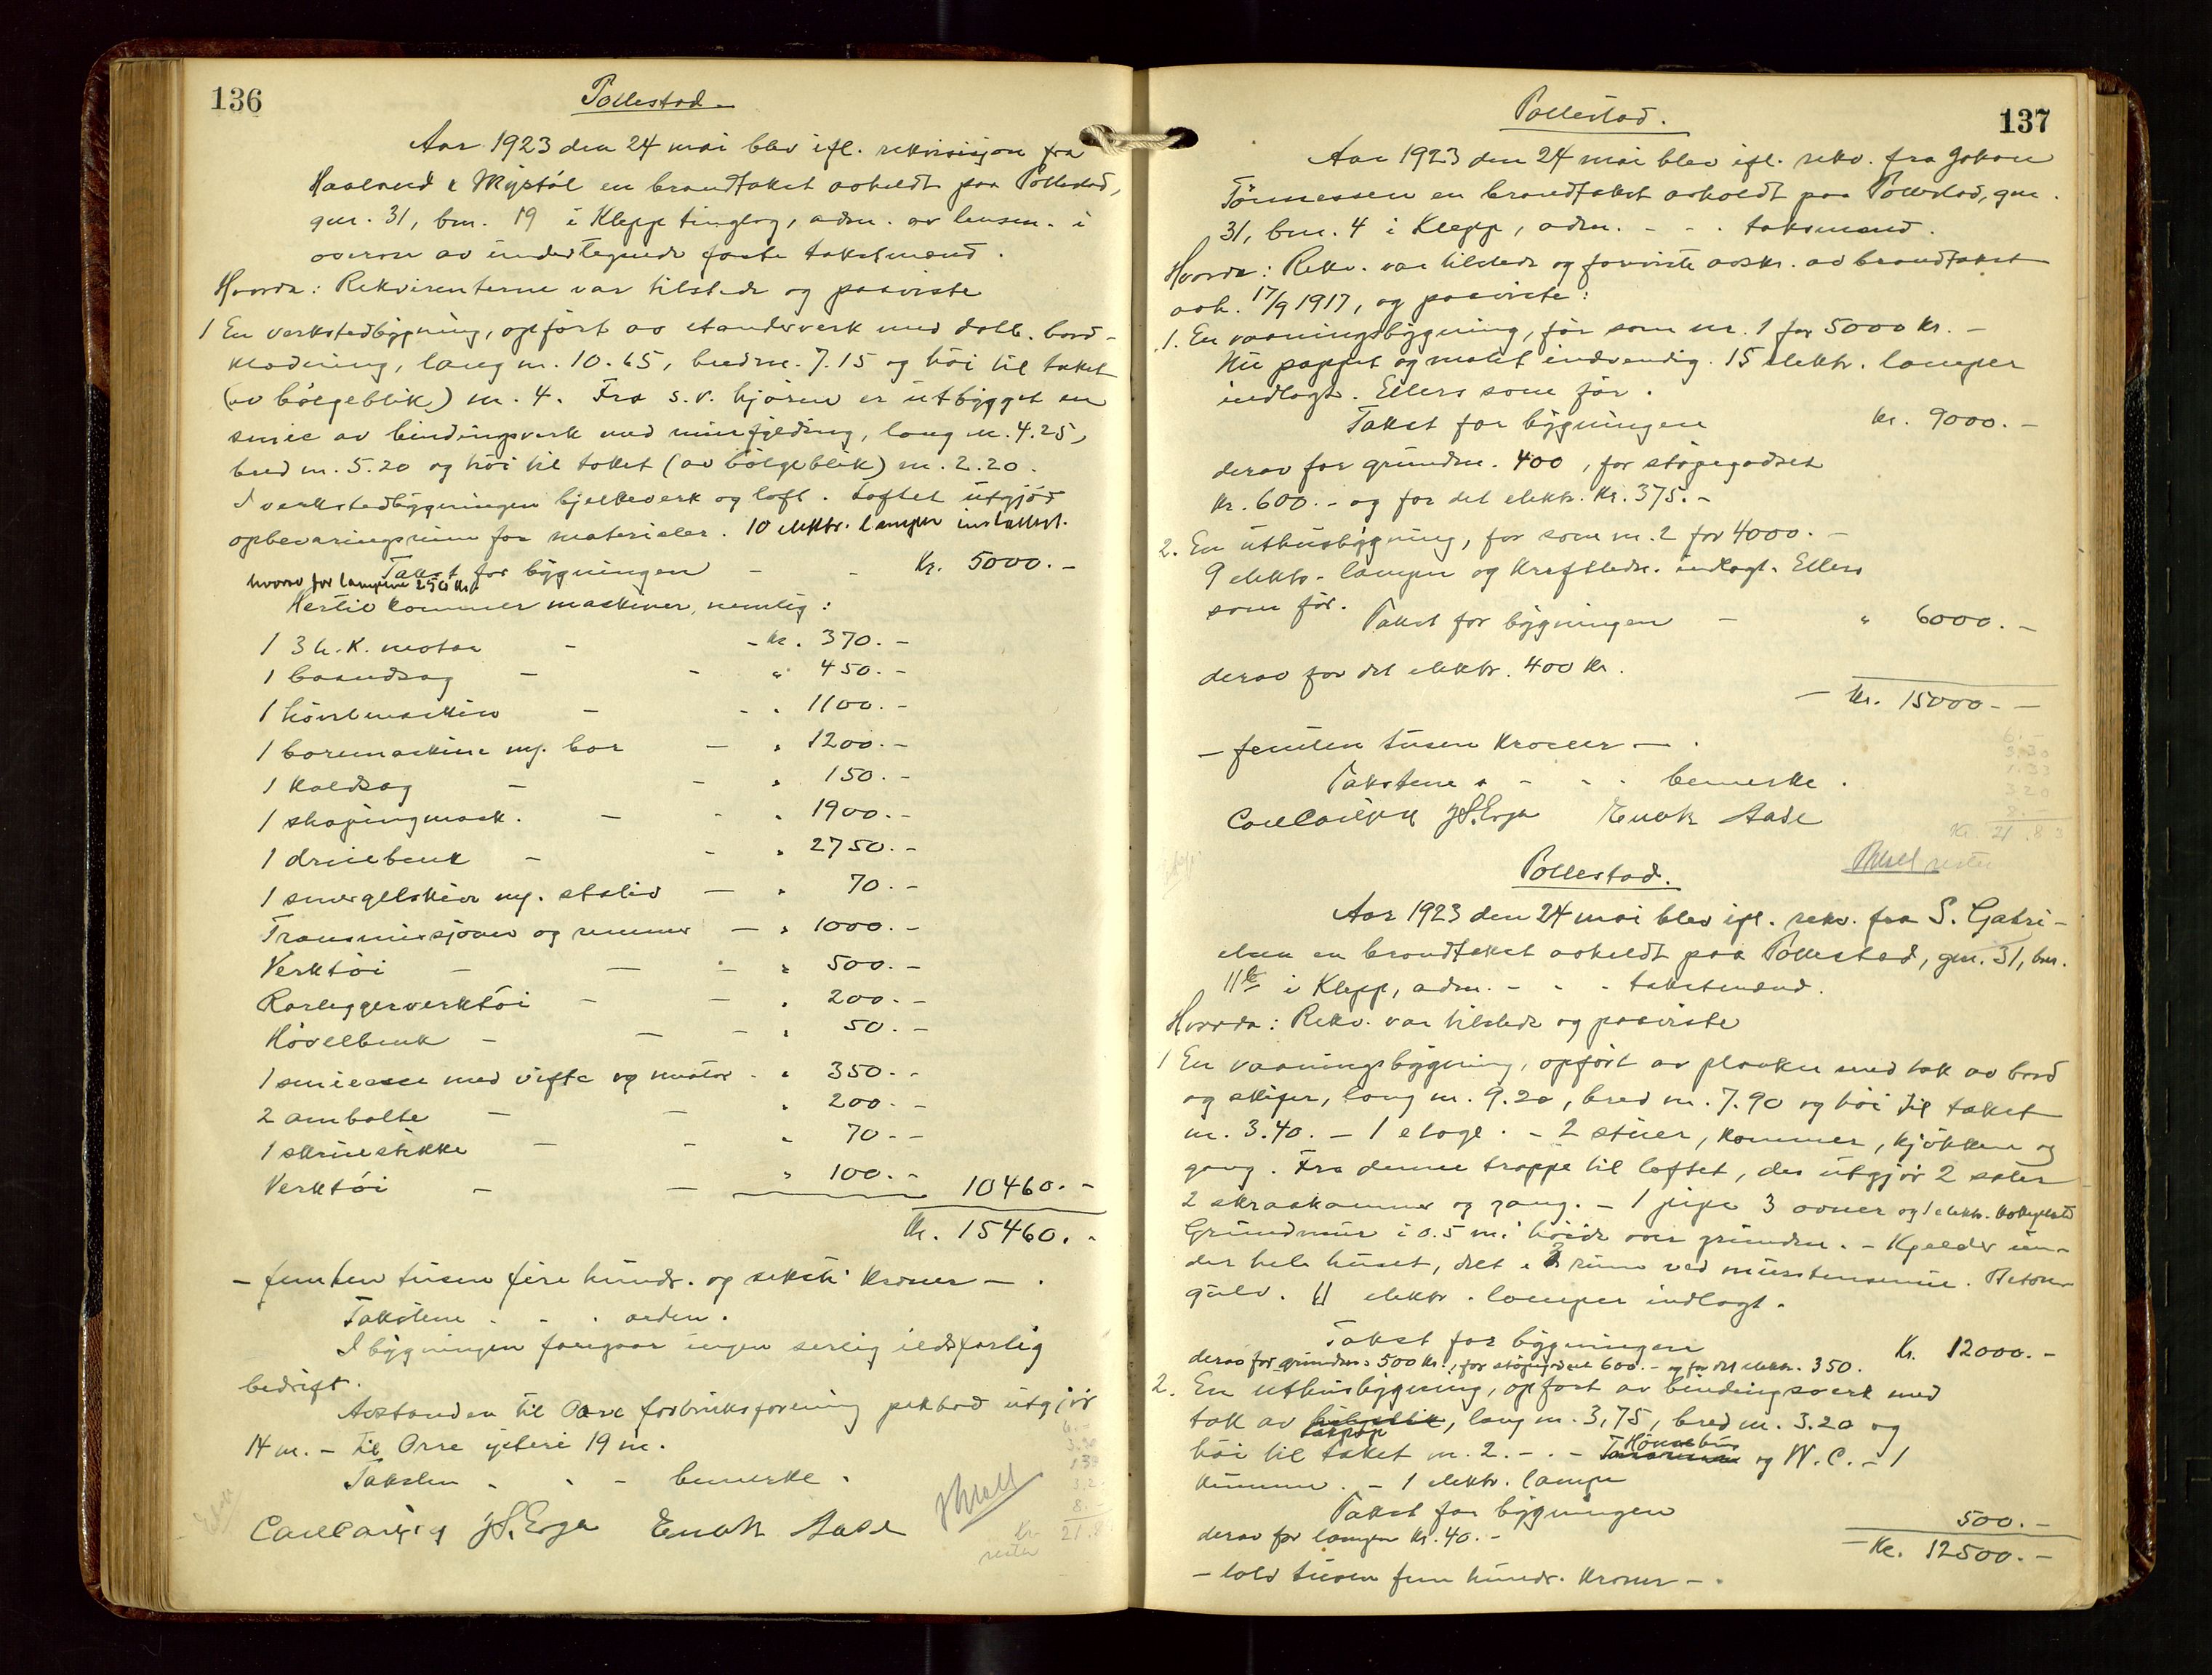 136
Pollestad.
Aar 1923 den 24 mai blev ifl. rekvisisjon fra
Haaland & Mystøl en brandtakst avholdt paa Pollestad,
gnr. 31, bnr. 19 i Klepp tinglag, adm. av lensm. i
overvær av undertegnede faste takstmænd.
Hvorda: Rekvirenterne var tilstede og paaviste
1 En verkstedbygning, opført av standerverk med dobb. bord-
klædning, lang m. 10.65, bredm. 7.15 og høi til taket
(av bølgeblik) m. 4. Fra s.v. hjørne er utbygget en
smie av bindingsverk med murfyldning, lang m. 4.25,
bred m. 5.20 og høi til taket (av bølgeblik) m. 2.20.
I verkstedbygningen bjelkeverk og loft. Loftet utgjør
opbevaringsrum for materialer. 10 elektr. lamper installert.
Takst for bygningen - - Kr. 5000.-
hvorav for lamperne 250 Kr.
Hertil kommer maskiner, nemlig:
1 3 h.K. motor - - Kr. 370.-
1 baandsag - - " 450.-
1 høvlmaskin - - " 1100.-
1 boremaskine m/. bor - " 1200.-
1 kaldsag - - " 150.-
1 shapingmask. - - " 1900.-
1 dreiebenk - - " 2750.-
1 smergelskive m/. stativ - " 70.-
Transmissjoner og remmer - " 1000.-
Verktøi - - - " 500.-
Rørleggerverktøi - - " 200.-
Høvelbenk - - - " 50.-
1 smieesse med vifte og motor - " 350.-
2 ambolte - - " 200.-
1 skruestikke - - " 70.-
Verktøi - - " 100.- 10460.-
Kr. 15460.-
- femten tusen fire hundr. og seksti kroner -.
Takstene . . . orden.
I bygningen foregaar ingen særlig ildsfarlig
bedrift.
Avstanden til Orre forbruksforening pakbod utgjør
14 m. - til Orre ysteri 19 m.
Taksten . . - bemerke.
J S. Erga Enok Aase
137
Pollestad.
Aar 1923 den 24 mai blev ifl. rekv. fra Johan
Tønnessen en brandtakst avholdt paa Pollestad, gnr.
31, bnr. 4 i Klepp, adm. - - - takstmænd.
Hvorda: Rekv. var tilstede og foreviste avskr. av brandtakst
avh. 17/9 1917, og paaviste:
1. En vaaningsbygning, før som nr. 1 for 5000 kr. -
Nu pappet og malet indvendig. 15 elektr. lamper
indlagt. Ellers som før.
Takst for bygningen Kr. 9000.-
derav for grundm. 400, for støpegodset
Kr. 600.- og for det elektr. Kr. 375.-
2. En uthusbygning, før som nr. 2 for 4000.-
9 elektr. lamper og kraftledn. indlagt. Ellers
som før.
Takst for bygningen - " 6000.-
derav for det elektr. 400 Kr.
- Kr. 15000.- -
- femten tusen kroner -.
Takstene . - - - bemerke.
J S. Erga Enok Aase
Pollestad.
Aar 1923 den 24 mai blev ifl. rekv. fra S. Gabri-
elsen en brandtakst avholdt paa Pollestad, gnr. 31, bnr.
11 i Klepp, adm. - - - takstmænd.
Hvorda: Rekv. var tilstede og paaviste
1 En vaaningsbygning, opført av planker med tak av bord
og skifer, lang m. 9.20, bred m. 7.90 og høi til taket
m. 3.40. - 1 etage. - 2 stuer, kammer, kjøkken og
gang. Fra denne trappe til loftet, der utgjør 2 saler
2 skraakammer og gang. - 1 pipe 3 ovner og 1 elektr. kokeplate
Grundmur i 0.5 m. høide over grunden. - Kjelder un-
der hele huset, delt i 3 rum ved murstensmur. Betong
gulv. 11 elektr. lamper indlagt.
Takst for bygningen Kr. 12000.-
derav for grundm. 500 Kr., for støpegodset 600.- og for det elektr. 350.
2. En uthusbygning, opført av bindingsverk med
tak av takpap, lang m. 3,75, bred m. 3.20 og
høi til taket m. 2.-. - Hønsehus og W.C. - 1
kumme. - 1 elektr. lampe
Takst for bygningen 500.-
derav for lampen Kr. 40.-
- Kr. 12500.-
- tolv tusen fem hundr. kroner -.